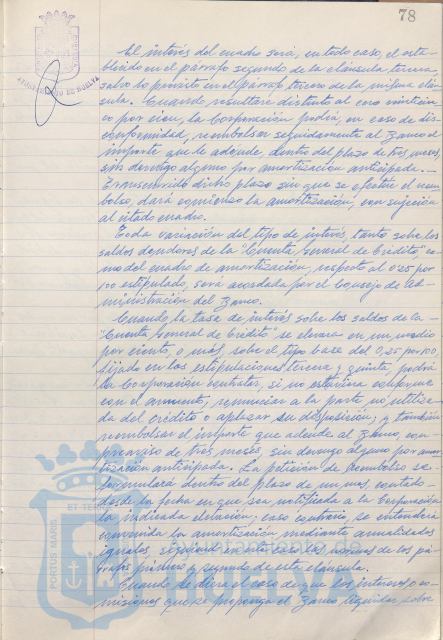 78
AYUNTAMIENTO DE HUELVA
El interés del cuadro será, en todo caso, el esta-
blecido en el párrafo segundo de la cláusula tercera
salvo lo previsto en el párrafo tercero de la misma cláu-
sula. Cuando resultare distinto al cero veintcin-
co por cien, la Corporación podrá, en caso de dis-
conformidad, reembolsar seguidamente al Banco el
importe que le adeude, dentro del plazo de tres meses,
sin devengo alguno por amortización anticipada.-
Transcurrido dicho plazo sin que se efectúe el reem-
bolso, dará comienzo la amortización, con sujeción
al citado cuadro.
Toda variación del tipo de interés, tanto sobre los
saldos deudores de la "Cuenta General de Crédito", co-
mo del cuadro de amortización, respecto al 0,25 por
100 estipulado, será acordada por el Consejo de Ad-
ministración del Banco.
Cuando la tasa de interés sobre los saldos de la -
"Cuenta General de Crédito" se elevara en un medio
por ciento, o más, sobre el tipo base del 0,25 por 100
fijado en las estipulaciones tercera y quinta, podrá
la Corporación contratar, si no estuviera conforme
con el aumento, renunciar a la parte no utiliza-
da del crédito o aplazar su disposición; y también
reembolsar el importe que adeude al Banco, con
preaviso de tres meses, sin devengo alguno por amor-
tización anticipada. La petición de reembolso se
formulará dentro del plazo de un mes, contado
desde la fecha en que sea notificada a la Corporación
la indicada elevación; caso contrario, se entenderá
convenida la amortización mediante anualidades
iguales, siguiendo en este caso las normas de los pá-
rrafos primero y segundo de esta cláusula.
Cuando se diere el caso de que los intereses o co-
misiones que se proponga el Banco liquidar sobre
PORTUS MARIS
ET TERRAE
HUELVA